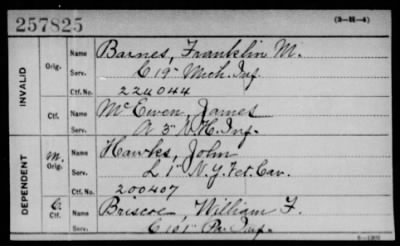 257825
(3-H-4)
INVALID
Orig. Name Barnes, Franklin M.
Serv. C 19" Mich. Inf.
Ctf. No. 224044
Ctf. Name McEwen, James
Serv. A 3" N.H. Inf.
DEPENDENT
M. Orig. Name Hawks, John
Serv. L 1" N.Y. Vet. Cav.
Ctf. No. 200407
C. Ctf. Name Briscoe, William F.
Serv. C 101" Pa Inf.